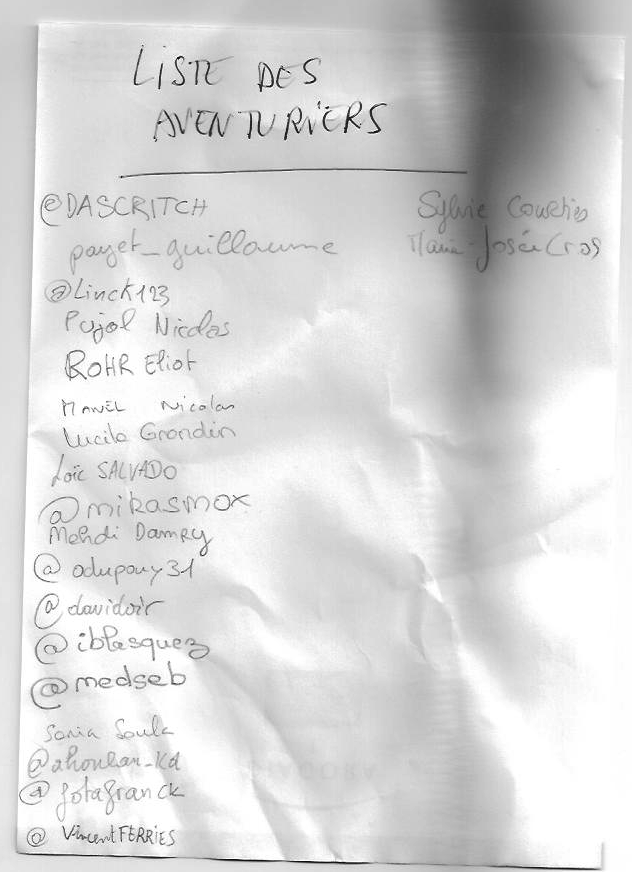 LISTE DES
AVENTURIERS
@DASCRITCH
payet_guillaume
@Linck123
Pujol Nicolas
ROHR Eliot
MANËL Nicolas
Lucile Grondin
Loïc SALVADO
@mikasmox
Mehdi Damey
@odupouy31
@davidoir
@iblasquez
@medseb
Sonia Soula
@ahouhan_Kd
@fotafranck
@VincentFERRIES
Sylvie Courties
Marie-Josée Cros